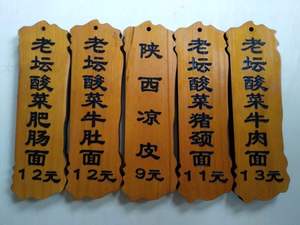 老坛酸菜肥肠面
12元
老坛酸菜牛肚面
12元
陕西凉皮
9元
老坛酸菜猪颈面
11元
老坛酸菜牛肉面
13元